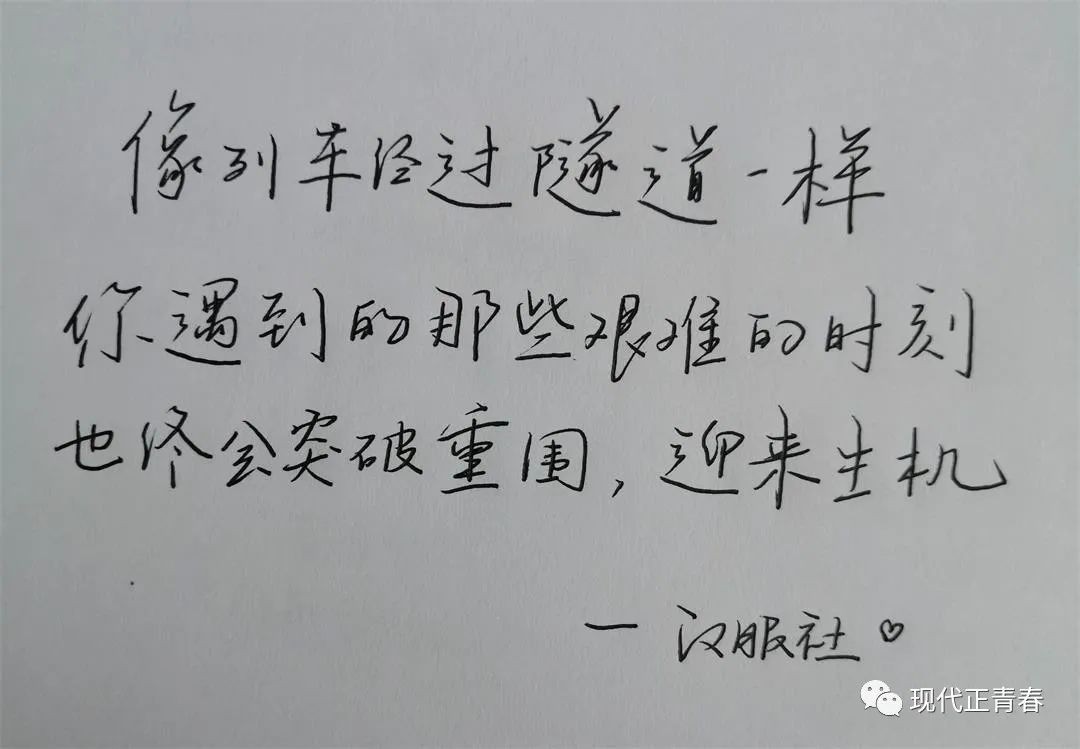 像列车经过隧道一样
你遇到的那些艰难的时刻
也终会突破重围，迎来生机
—汉服社♡
现代正青春